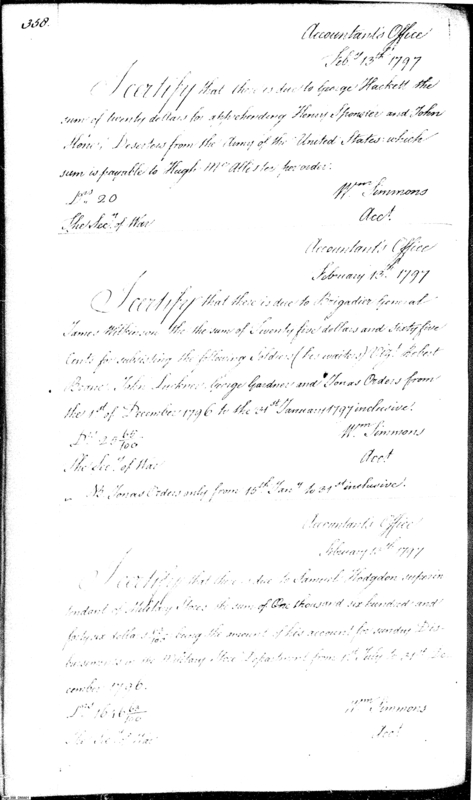 358.
Accountant's Office
Feb.y 13th 1797
I certify that there is due to George Hackett the
sum of twenty dollars for apprehending Henry Sponster and John
Stone Deserters from the Army of the United States which
sum is payable to Hugh Mc Allester per order.
Drs 20
Wm Simmons
Acct.
The Secy of War
Accountant's Office
February 13th 1797
I certify that there is due to Brigadier General
James Wilkinson the the sum of Twenty five dollars and Sixty five
Cents for subsisting the following Soldiers (his waiters) Vizt Robert
John George Gardner and Jonas Orders from
the 1st of December 1796 to the 31st January 1797 inclusive.
Drs 25 65/100
Wm Simmons
Acct
The Secy of War
NB Jonas Orders only from 15th Jany to 31st inclusive.
Accountant's Office
February 13th 1797
I certify that there is due to Samuel Hodgdon superin
tendant of Military Stores the sum of One thousand six hundred and
forty six dollars 60/100 being the amount of his account for sundry Dis
bursements in the Military Store Department from 1st July to 31st De
cember 1796.
Drs 1646 60/100
Wm Simmons
Acct
The Secy of War